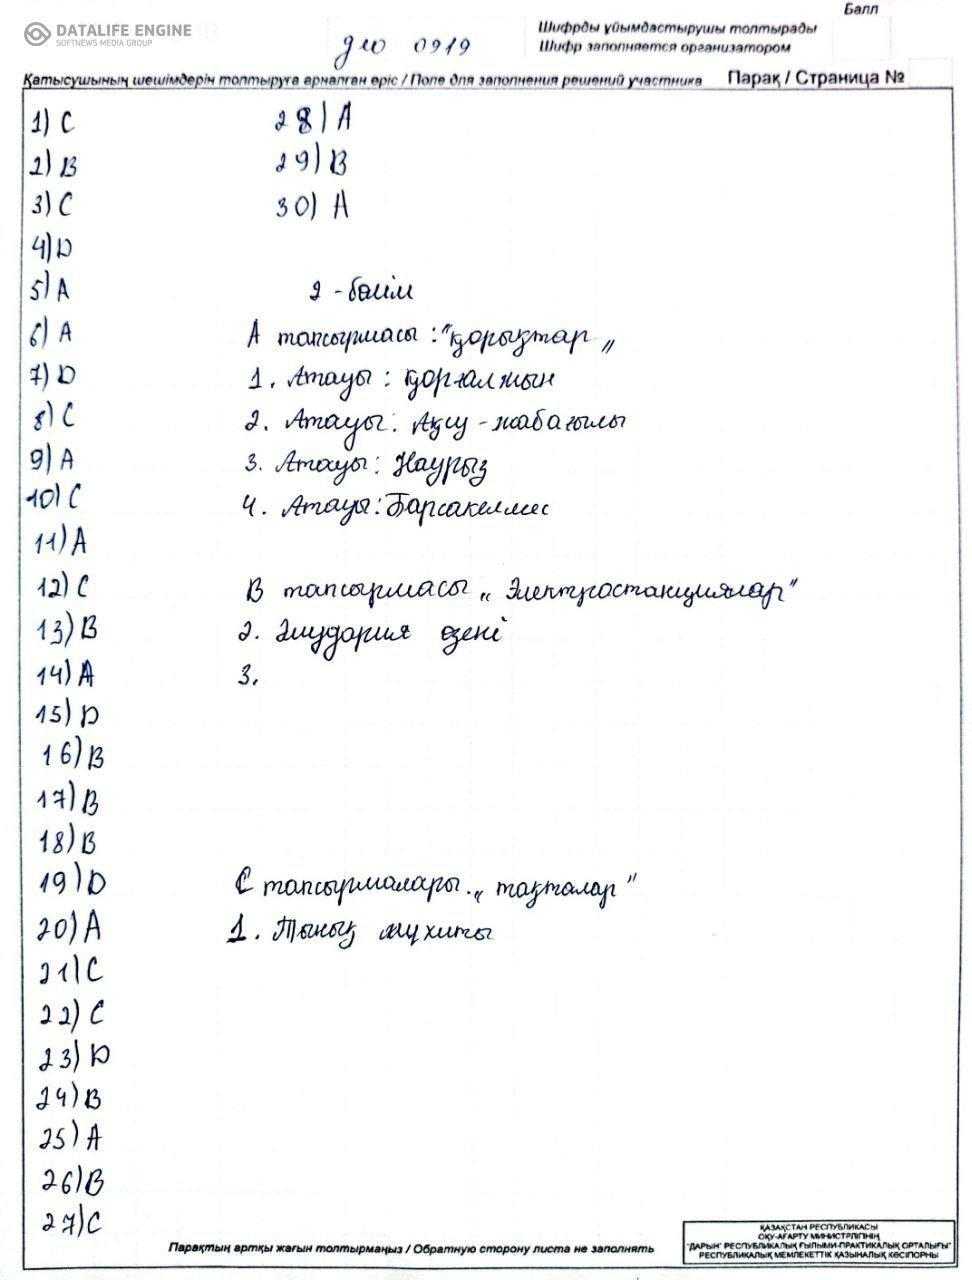 DATALIFE ENGINE
SOFTNEWS MEDIA GROUP
Балл
Шифрды ұйымдастырушы толтырады
Шифр заполняется организатором
gео 0919
Қатысушының шешімдерін толтыруға арналған өріс / Поле для заполнения решений участника Парақ / Страница №
1) C
2) B
3) C
4) D
5) A
6) A
7) D
8) C
9) A
10) C
11) A
12) C
13) B
14) A
15) D
16) B
17) B
18) B
19) D
20) A
21) C
22) C
23) D
24) B
25) A
26) B
27) C
28) A
29) B
30) A
2 - бөлім
А тапсырмасы : "қорықтар „
1. Атауы : қорғалжын
2. Атауы: Ақсу - жабағылы
3. Атауы: Наурыз
4. Атауы: Барсакелмес
В тапсырмасы „ Электростанциялар"
2. Әмудария өзені
3.
С тапсырмалары. „ тақталар"
1. Тынық мұхиты
Парақтың артқы жағын толтырмаңыз / Обратную сторону листа не заполнять
ҚАЗАҚСТАН РЕСПУБЛИКАСЫ
ОҚУ-АҒАРТУ МИНИСТРЛІГІНІҢ
"ДАРЫН" РЕСПУБЛИКАЛЫҚ ҒЫЛЫМИ-ПРАКТИКАЛЫҚ ОРТАЛЫҒЫ"
РЕСПУБЛИКАЛЫҚ МЕМЛЕКЕТТІК ҚАЗЫНАЛЫҚ КӘСІПОРНЫ